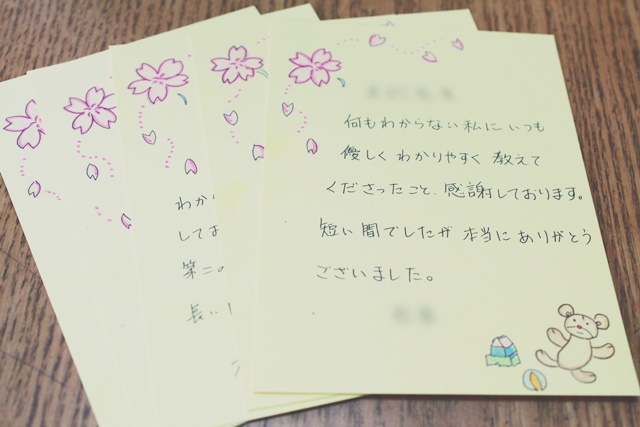 何もわからない私にいつも
優しくわかりやすく教えて
くださったこと、感謝しております。
短い間でしたが本当にありがとう
ございました。
わかり
してお
第二の
長い